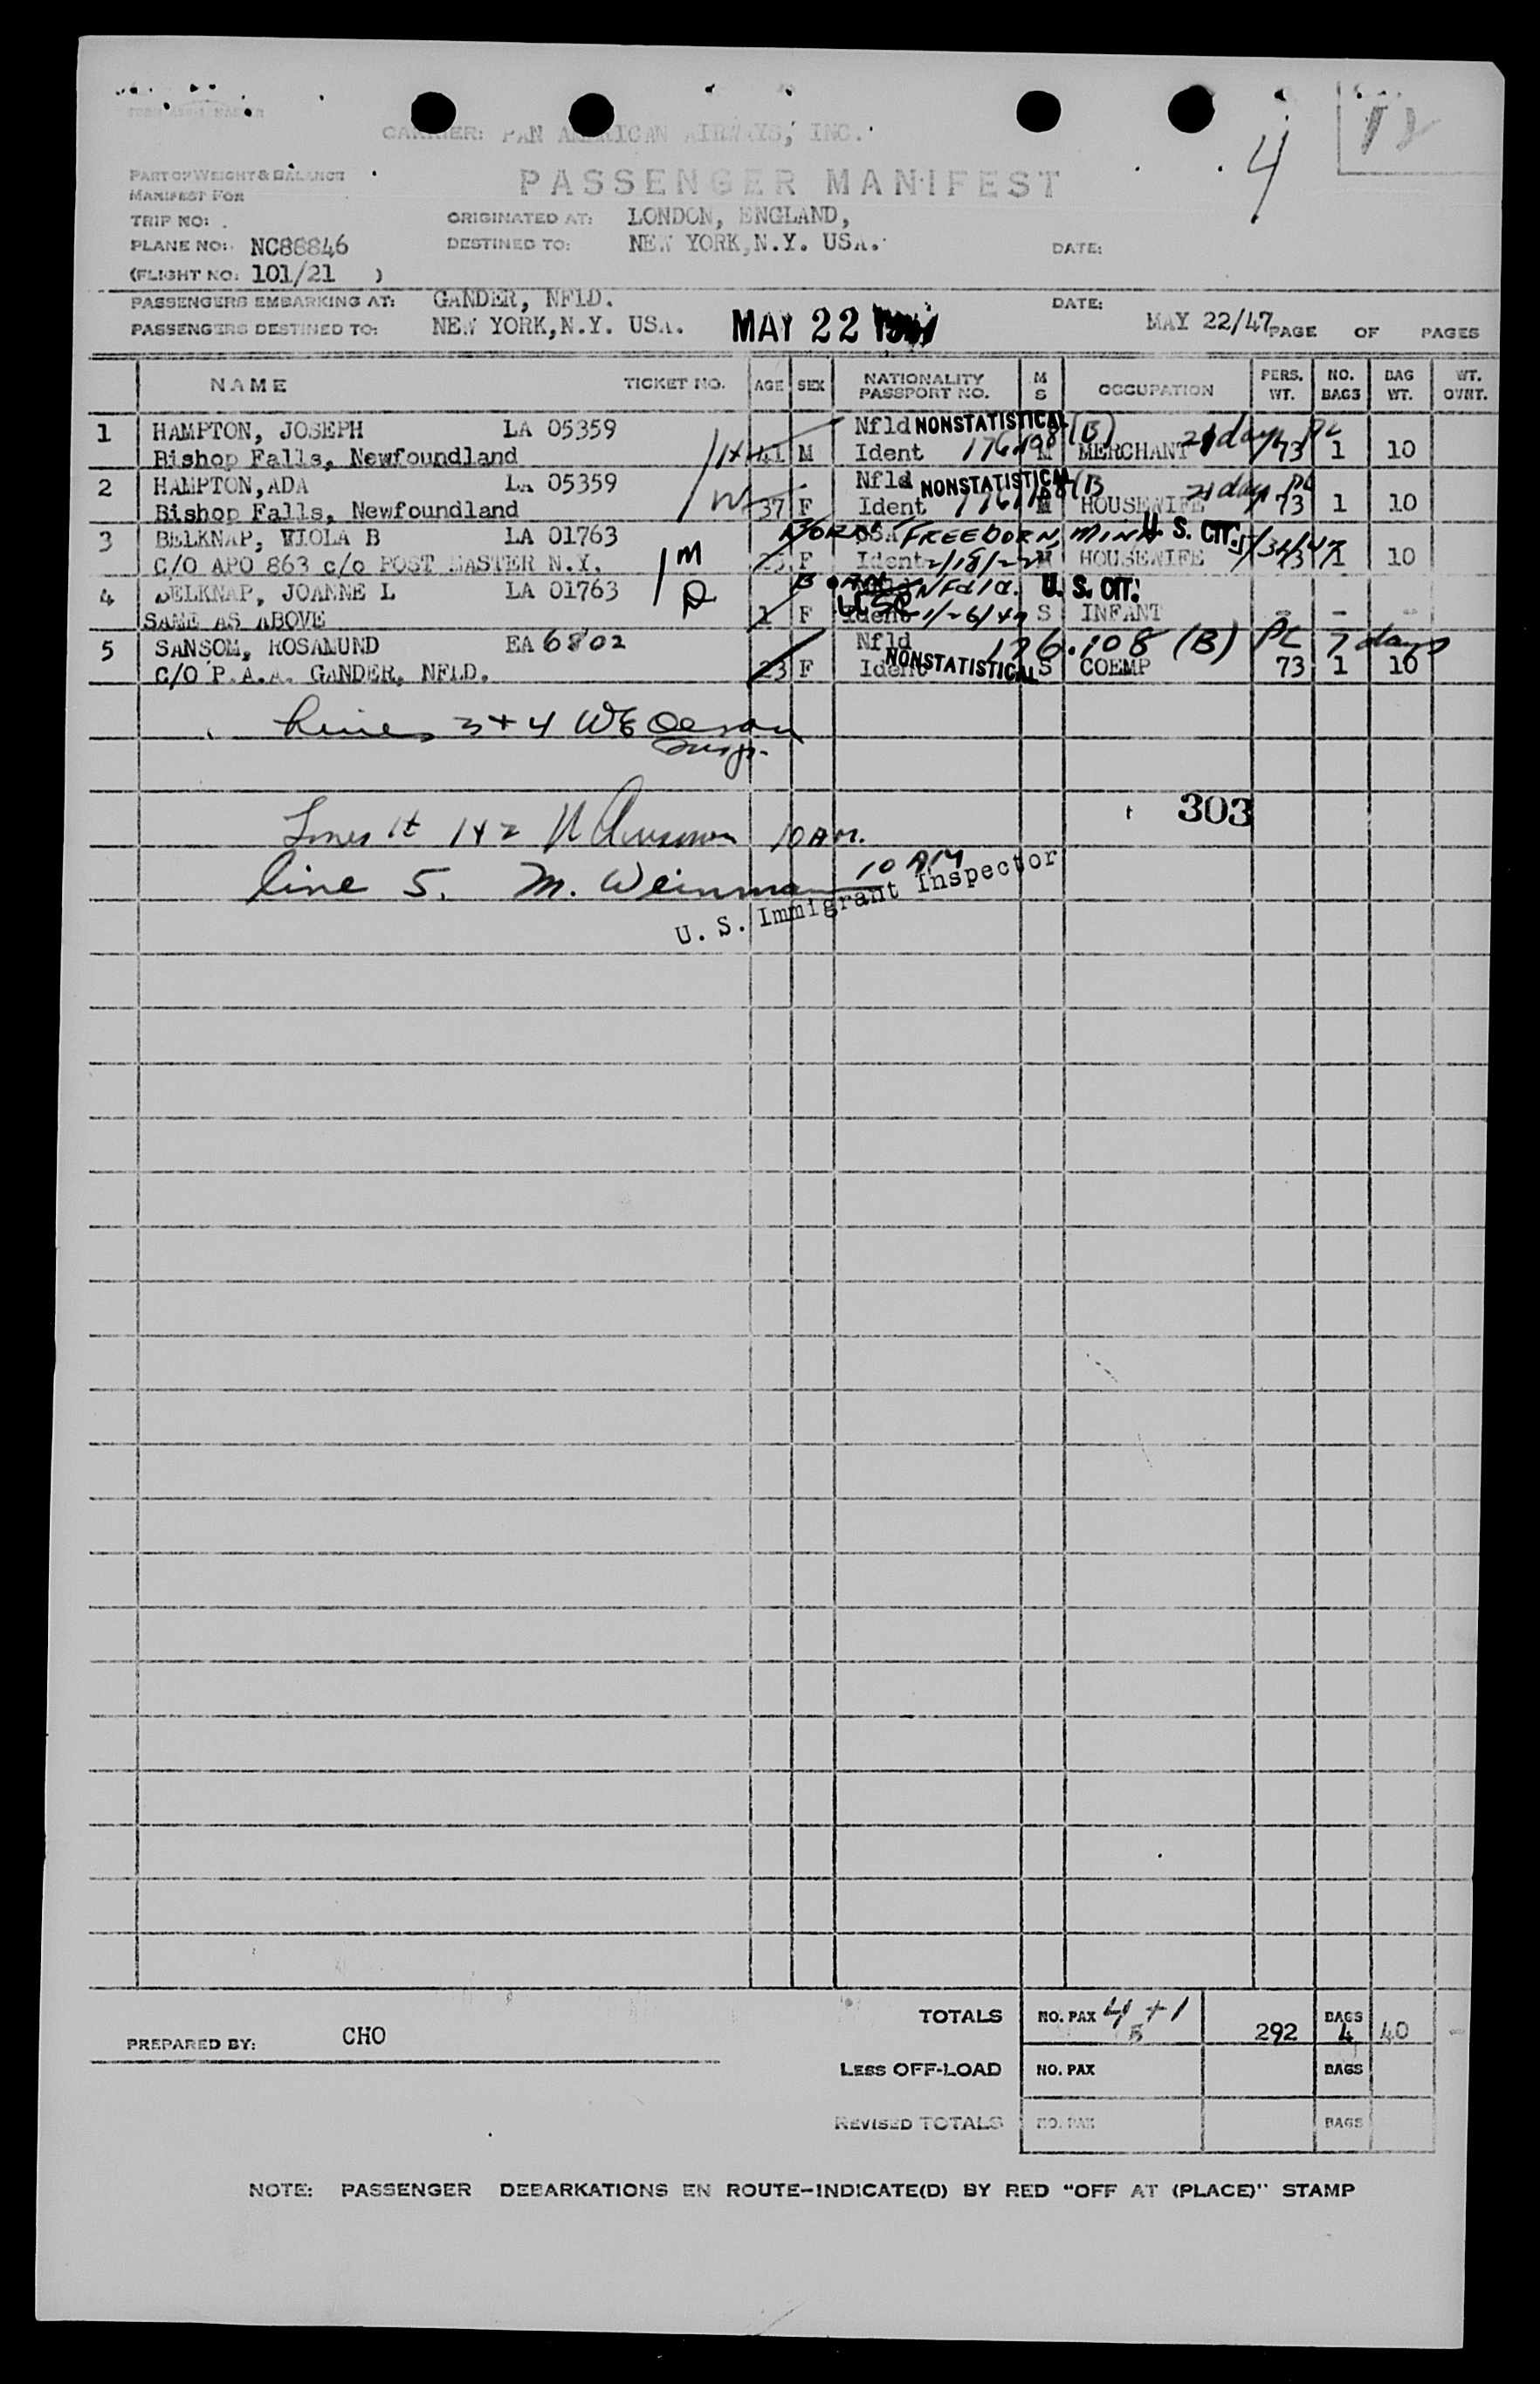 CARRIER: PAN AMERICAN AIRWAYS, INC.
4
PART OF WEIGHT & BALANCE
MANIFEST FOR
PASSENGER MANIFEST
TRIP NO:
ORIGINATED AT: LONDON, ENGLAND,
PLANE NO: NC88846
DESTINED TO: NEW YORK,N.Y. USA.
DATE:
(FLIGHT NO: 101/21 )
PASSENGERS EMBARKING AT: GANDER, NFLD.
DATE: MAY 22/47
PASSENGERS DESTINED TO: NEW YORK,N.Y. USA.
MAY 22
PAGE OF PAGES
NAME TICKET NO. AGE SEX NATIONALITY PASSPORT NO. M S OCCUPATION PERS. WT. NO. BAGS BAG WT. WT. OVHT.
1 HAMPTON, JOSEPH LA 05359 Nfld NONSTATISTICAL (B) 21 days PL
Bishop Falls, Newfoundland 41 M Ident M MERCHANT 73 1 10
2 HAMPTON,ADA LA 05359 Nfld NONSTATISTICAL (B 21 days PL
Bishop Falls, Newfoundland 37 F Ident M HOUSEWIFE 73 1 10
3 BELKNAP, VIOLA B LA 01763 BORN USA FREEBORN, MINN U. S. CIT.
C/O APO 863 c/o POST MASTER N.Y. M F Ident 2/18/22 M HOUSEWIFE 73 1 10
4 BELKNAP, JOANNE L LA 01763 BORN Nfld. U. S. CIT.
SAME AS ABOVE D 1 F Ident S INFANT - - -
5 SANSOM, ROSAMUND EA 6802 Nfld 176.108 (B) PL 7 days
C/O P.A.A. GANDER, NFLD. 23 F Ident NONSTATISTICAL S COEMP 73 1 10
Lines 3+4 WE Oeson
Insp.
303
Lines 1+2 10 AM.
line 5. M. Weinman 10 AM
U. S. Immigrant Inspector
PREPARED BY: CHO
TOTALS NO. PAX 4+1 292 BAGS 4 40 -
5
LESS OFF-LOAD NO. PAX BAGS
REVISED TOTALS NO. PAX BAGS
NOTE: PASSENGER DEBARKATIONS EN ROUTE-INDICATE(D) BY RED "OFF AT (PLACE)" STAMP